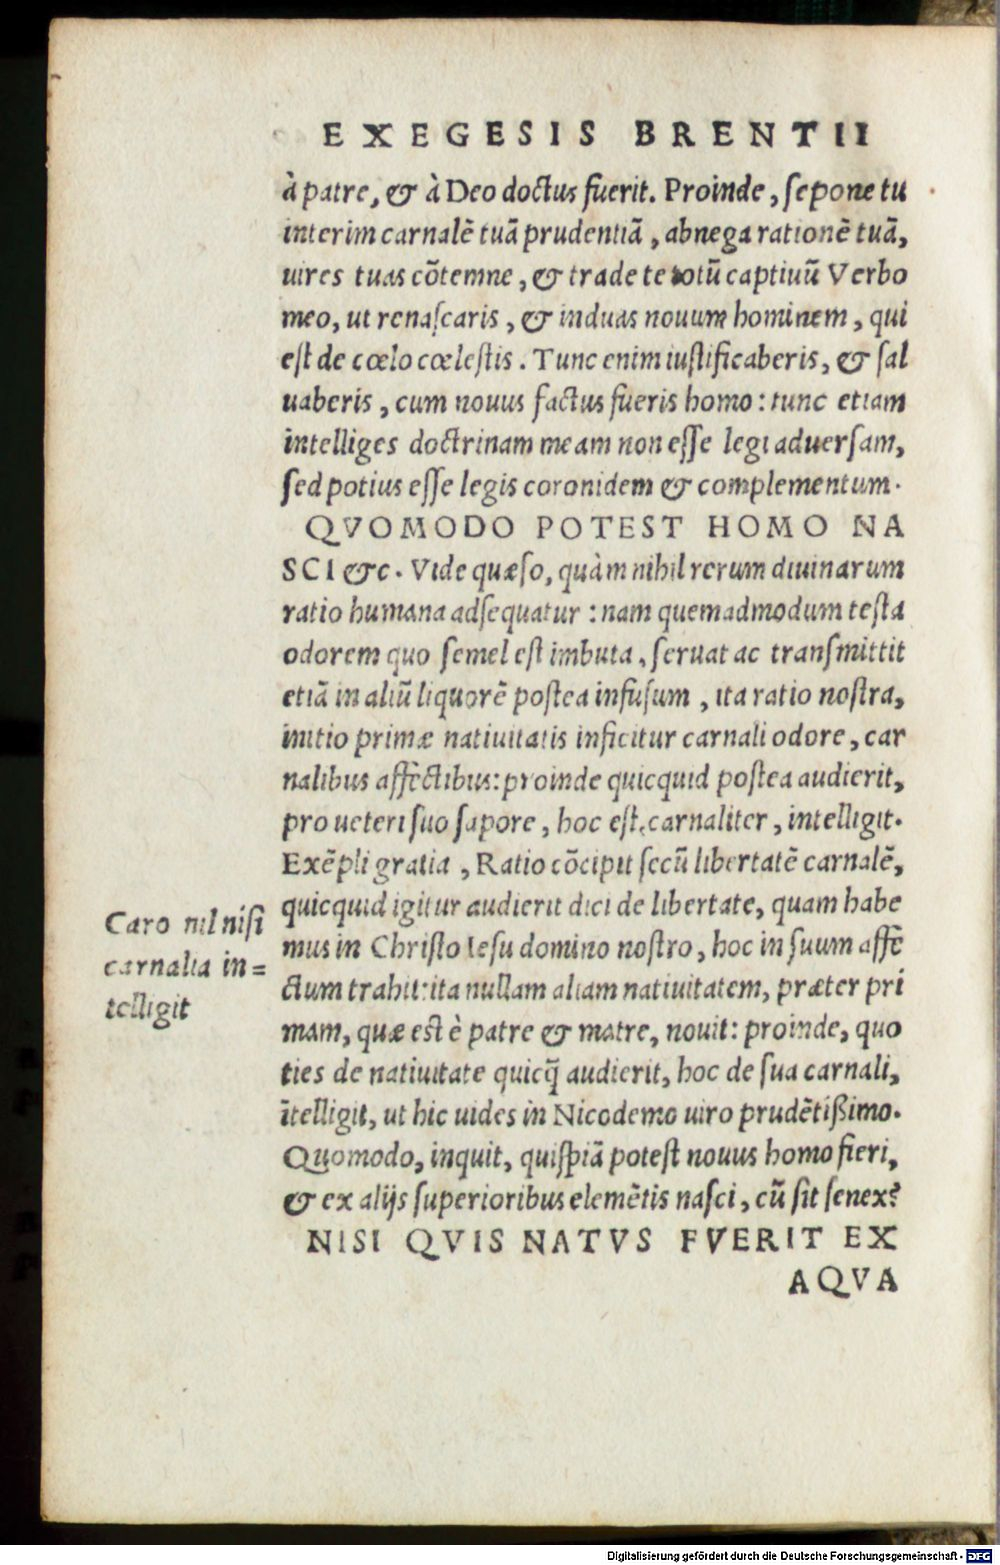 EXEGESIS BRENTII
à patre, & à Deo doctus fuerit. Proinde, sepone tu
interim carnalē tuā prudentiā, abnega rationē tuā,
uires tuas cōtemne, & trade te totū captiuū Verbo
meo, ut renascaris, & induas nouum hominem, qui
est de cœlo cœlestis. Tunc enim iustificaberis, & sal
uaberis, cum nouus factus fueris homo: tunc etiam
intelliges doctrinam meam non esse legi aduersam,
sed potius esse legis coronidem & complementum.
QVOMODO POTEST HOMO NA
SCI &c. Vide quæso, quàm nihil rerum diuinarum
ratio humana adsequatur: nam quemadmodum testa
odorem quo semel est imbuta, seruat ac transmittit
etiā in aliū liquorē postea infusum, ita ratio nostra,
initio primæ natiuitatis inficitur carnali odore, car
nalibus affectibus: proinde quicquid postea audierit,
pro ueteri suo sapore, hoc est, carnaliter, intelligit.
Exēpli gratia, Ratio cōcipit secū libertatē carnalē,
quicquid igitur audierit dici de libertate, quam habe
mus in Christo Iesu domino nostro, hoc in suum affe
ctum trahit: ita nullam aliam natiuitatem, præter pri
mam, quæ est è patre & matre, nouit: proinde, quo
ties de natiuitate quicq̄ audierit, hoc de sua carnali,
ītelligit, ut hic uides in Nicodemo uiro prudētißimo.
Quomodo, inquit, quispiā potest nouus homo fieri,
& ex alijs superioribus elemētis nasci, cū sit senex?
NISI QVIS NATVS FVERIT EX
AQVA
Caro nil nisi
carnalia in=
telligit
Digitalisierung gefördert durch die Deutsche Forschungsgemeinschaft - DFG